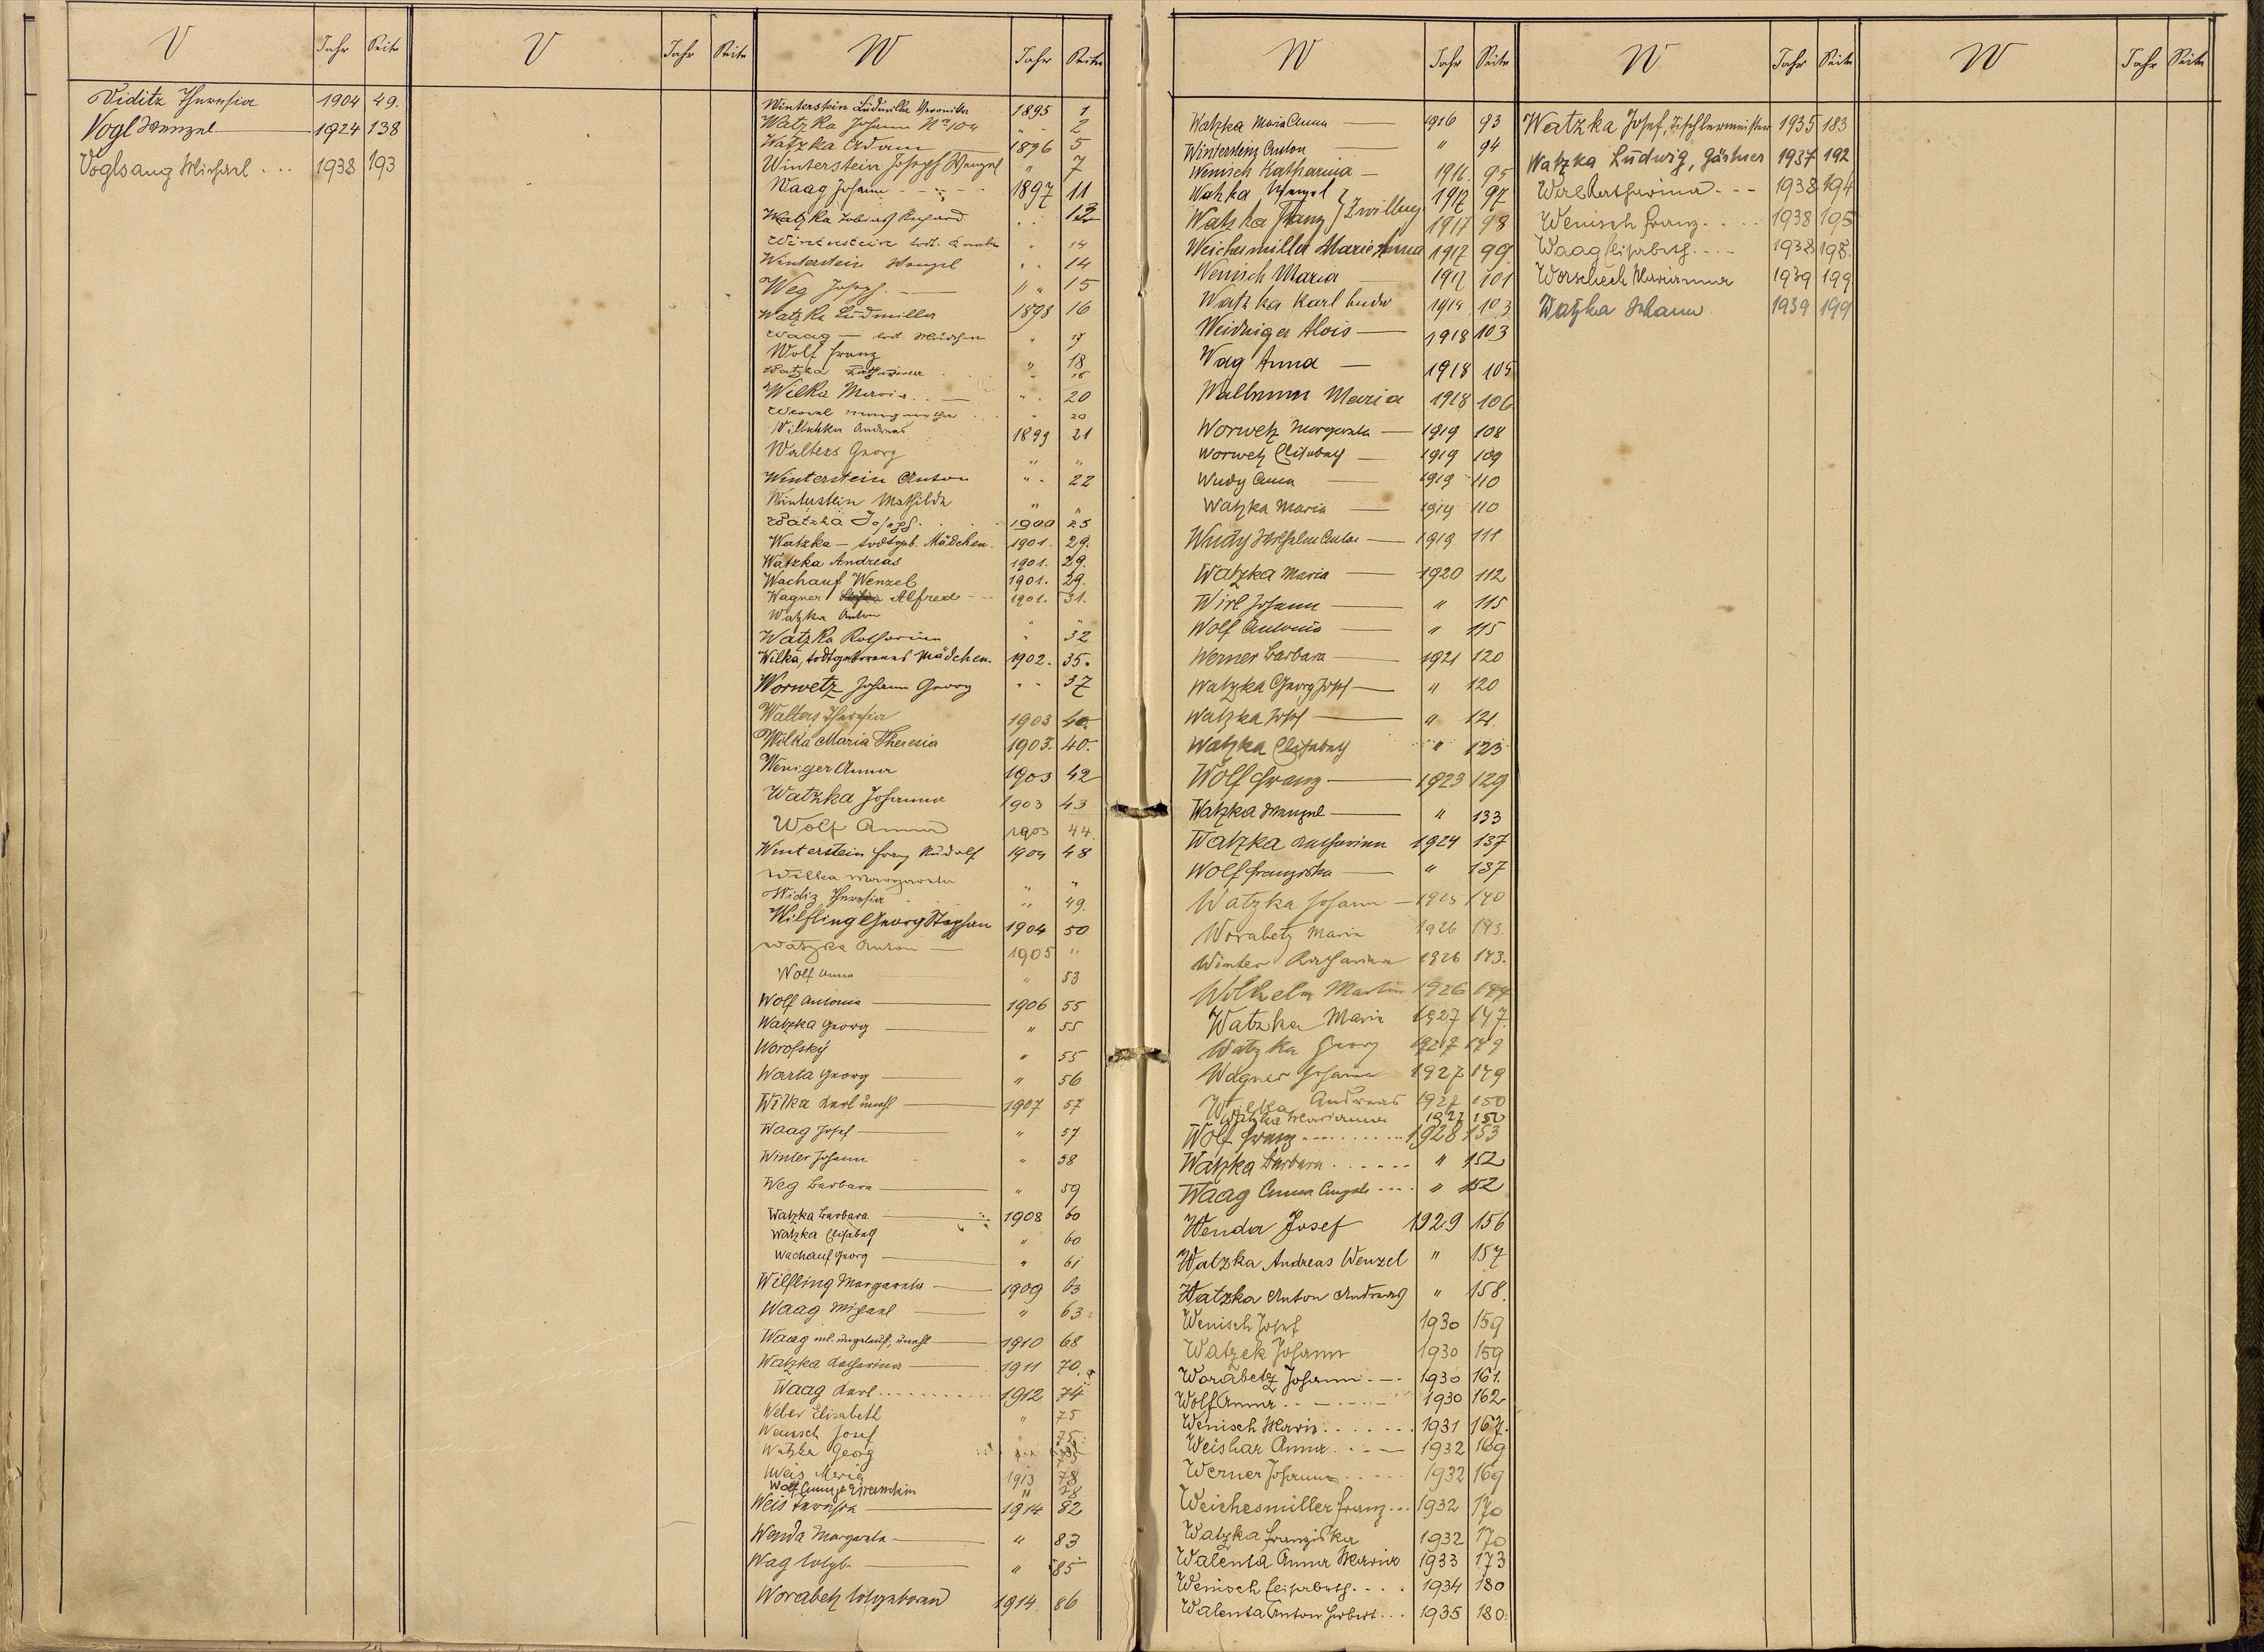 V Jahr Seite
Viditz Theresia 1904 49.
Vogl Wenzel 1924 138
Voglsang Michael ... 1938 193
V Jahr Seite
W Jahr Seite
Winterstein Ludmilla Veronika 1895 1
Watzka Johann No 104 " " 2
Watzka Adam 1896 5
Winterstein Joseph Wenzel " 7
Waag Johann 1897 11
Watzka Tobias Richard " 12
Winterstein todt. Knabe " 14
Winterstein Wenzel " " 14
Weg Joseph " " 15
Watzka Ludmilla 1898 16
Waag — todt. Mädchen "
Wolf Franz " 18
Watzka Katharina " 18
Wilka Maria " " 20
Margaretha " 20
Andreas 1899 21
Walters Georg " "
Winterstein Anton " " 22
Winterstein Mathilde " "
Watzka Joseph 1900 25
Watzka — todtgeb. Mädchen. 1901. 29.
Watzka Andreas 1901. 29.
Wachauf Wenzel 1901. 29.
Wagner Alfred 1901. 31.
Watzka Anton " "
Watzka Katharina " 32
Wilka, todtgeborenes Mädchen. 1902. 35.
Worwetz Johann Georg " " 37
Walters Theresia 1903 40.
Wilka Maria Theresia 1903. 40.
Weniger Anna 1903 42
Watzka Johanna 1903 43
Wolf Anna 1903 44.
Winterstein Franz Rudolf 1904 48
Wilka Margaretha " "
Widiz Theresia " 49.
Wilfling Georg Stephan 1904 50
Watzka Anton 1905 "
Wolf Anna " 53
Wolf Antonia 1906 55
Watzka Georg " 55
Worofsky " 55
Warta Georg " 56
Wilka Karl unehl 1907 57
Waag Josef " 57
Winter Johann " 58
Weg Barbara " 59
Watzka Barbara 1908 60
Watzka Elisabeth " 60
Wachauf Georg " 61
Wilfling Margareta 1909 63
Waag Michael " 63
Waag ml. ungetauft, unehl 1910 68
Watzka Katharina 1911 70.
Waag Karl 1912 74
Weber Elisabeth " 75
Wenisch Josef " 75
Watzka Georg " 75
Weis Maria 1913 78
Wolf " 78
Weis Theresia 1914 82
Wenda Margareta " 83
Wag totgb. " 85
Worabetz totgeboren 1914 86
W Jahr Seite
Watzka Maria Anna 1916 93
Anton " 94
Wenisch Katharina 1916. 95
Watzka Wenzel } Zwilling 1917 97
Watzka Franz 1917 98
Weichesmiller Marie Anna 1917 99.
Wenisch Maria 1917 101
Watzka Karl 1918 103
Weidniger Alois 1918 103
Wag Anna 1918 105
Maria 1918 106
Worwetz Margareta 1919 108
Worwetz Elisabeth 1919 109
Wudy Anna 1919 110
Watzka Maria 1919 110
Wudy Wilhelm Anton 1919 111
Watzka Maria 1920 112
Wirl Johann " 115
Wolf Antonia " 115
Werner Barbara 1921 120
Watzka Georg Josef " 120
Watzka Josef " 121
Watzka Elisabeth " 123
Wolf Franz 1923 129
Watzka Wenzel " 133
Watzka Katharina 1924 137
Wolf Franziska " 137
Watzka Johann 1925 140
Worabetz Maria 1926 143.
Winter Katharina 1926 143.
Wilhelm Martin 1926 144
Watzka Maria 1927 147.
Watzka Georg 1927 149
Wagner Johann 1927 149
Wilka Andreas 1927 150
Watzka Marianna 1927 150
Wolf Franz 1928 153
Watzka Barbara " 152
Waag Anna Angela " 152
Wenda Josef 1929 156
Watzka Andreas Wenzel " 157
Watzka Anton Andreas " 158.
Wenisch Josef 1930 159
Watzek Johann 1930 159
Worabetz Johann 1930 161.
Wolf Anna 1930 162
Wenisch Maria 1931 167.
Weishar Anna 1932 169
Werner Johann 1932 169
Weichesmiller Franz 1932 170
Watzka Franziska 1932 170
Walenta Anna Maria 1933 173
Wenisch Elisabeth 1934 180
Walenta Anton Herbert 1935 180.
W Jahr Seite
Watzka Josef, Tischlermeister 1935 183
Watzka Ludwig, Gärtner 1937 192
Katharina 1938 194
Wenisch Franz 1938 195
Waag Elisabeth 1938 198.
Worschech Marianna 1939 199
Watzka 1939 199
W Jahr Seite